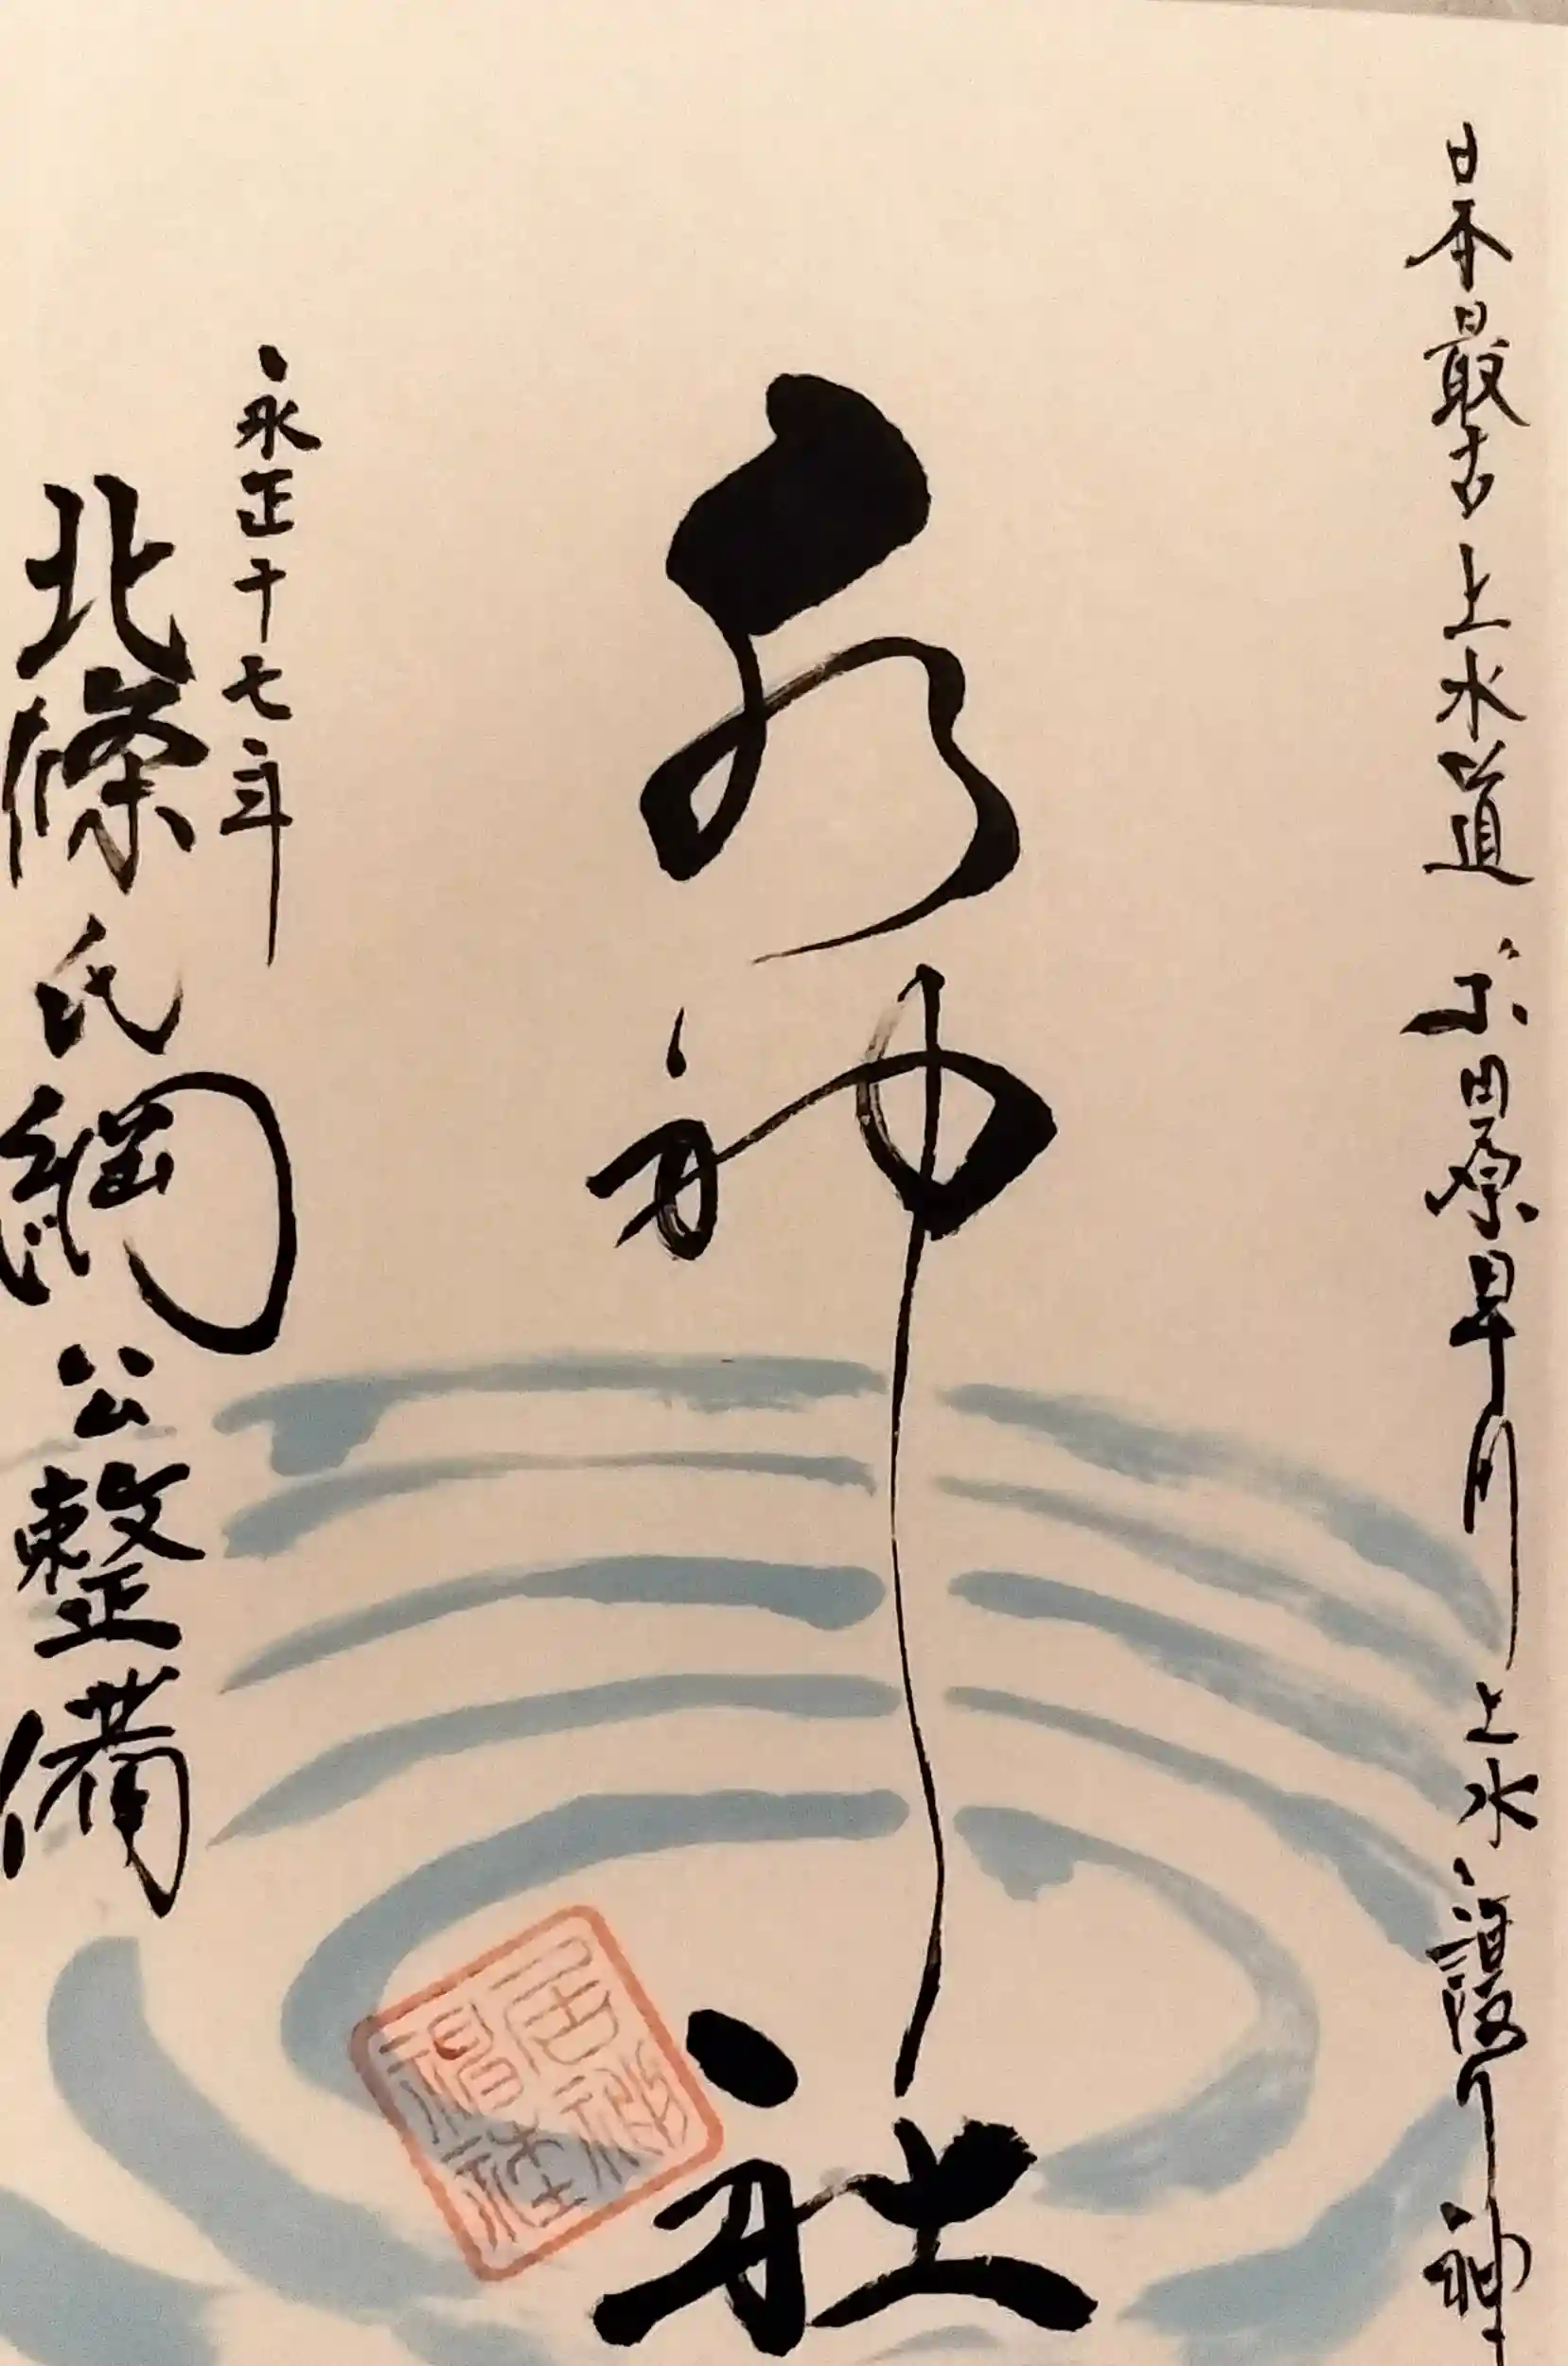 日本最古上水道 小田原早川上水護り神
水神社
永正十七年
北條氏綱公整備
居神
神社